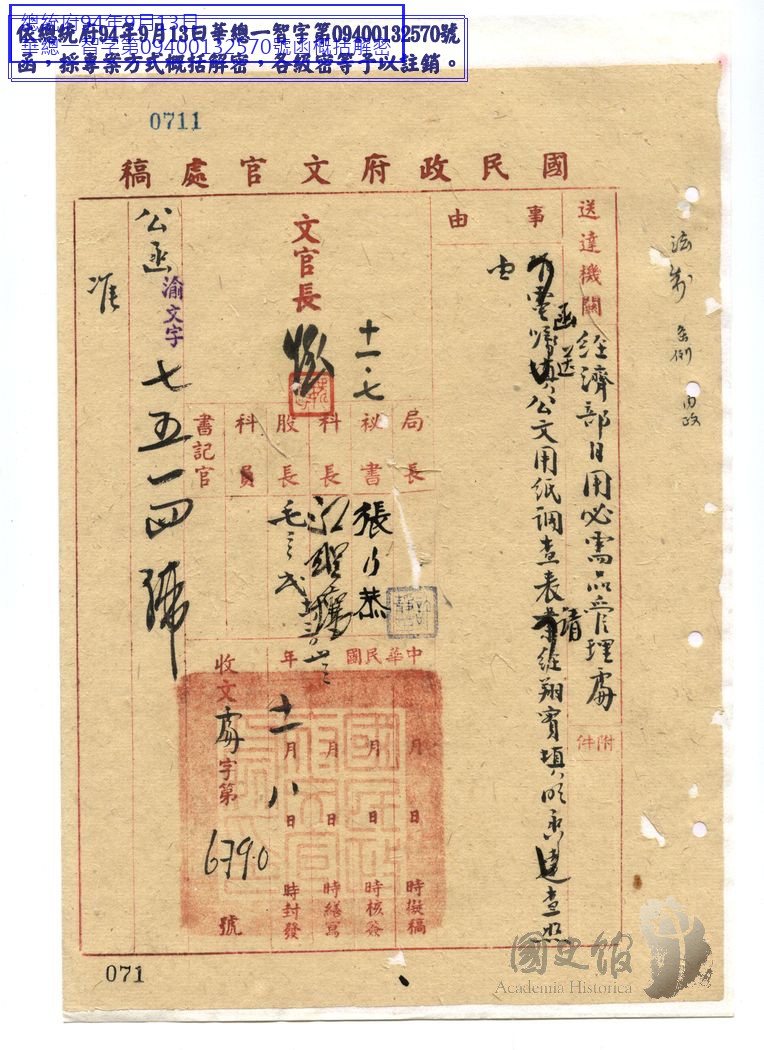 總統府94年9月13日
華總一智字第09400132570號函概括解密
依總統府94年9月13日華總一智字第09400132570號
函，採專案方式概括解密，各級密等予以註銷。
0711
國民政府文官處稿
送達機關
經濟部日用必需品管理處
附件
事由
函送
填公文用紙調查表
請
經翔實填明函達查照
由
文官長
十一、七
局長
秘書
科長
股長
科員
書記官
張
中華民國 年
月 日 時擬稿
月 日 時核簽
月 日 時繕寫
十一月八日 時封發
收文處字第6390號
公函
渝文字
七五一四號
准
條例
內政
071
國史館
Academia Historica